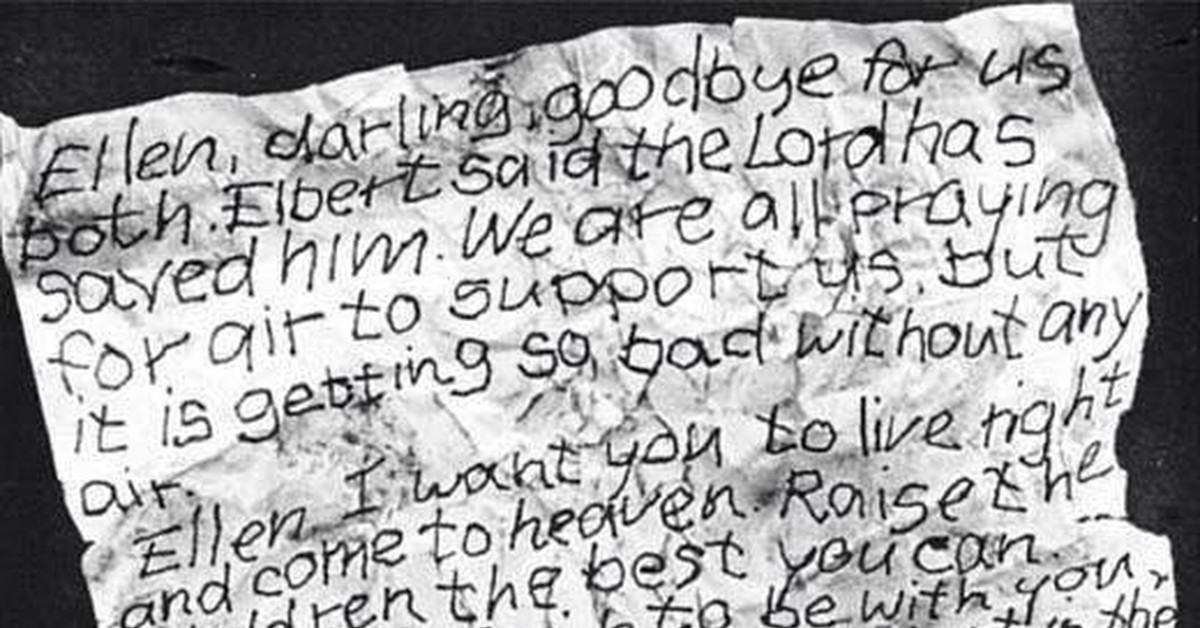 Ellen, darling, goodbye for us
both. Elbert said the Lord has
saved him. We are all praying
for air to support us, but
it is getting so bad without any
air.
Ellen I want you to live right
and come to heaven. Raise the
children the best you can.
to be with you,
the